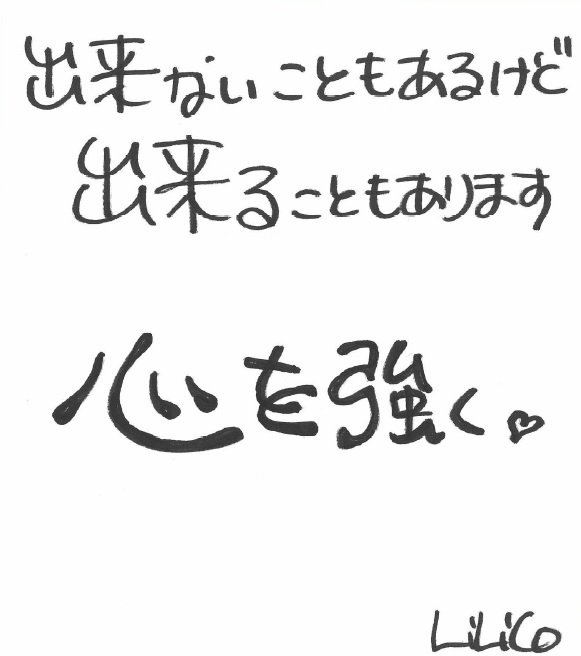 出来ないこともあるけど
出来ることもあります
心を強く。♡
LiLiCo